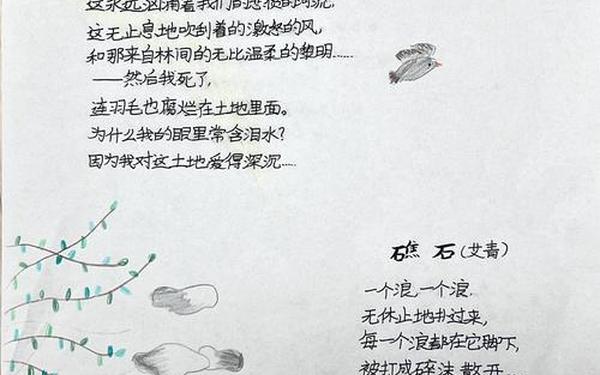 这永远汹涌着我们的悲愤的河流,
这无止息地吹刮着的激怒的风,
和那来自林间的无比温柔的黎明……
——然后我死了,
连羽毛也腐烂在土地里面。
为什么我的眼里常含泪水?
因为我对这土地爱得深沉……
礁 石(艾青)
一个浪,一个浪,
无休止地扑过来,
每一个浪都在它脚下,
被打成碎沫、散开……